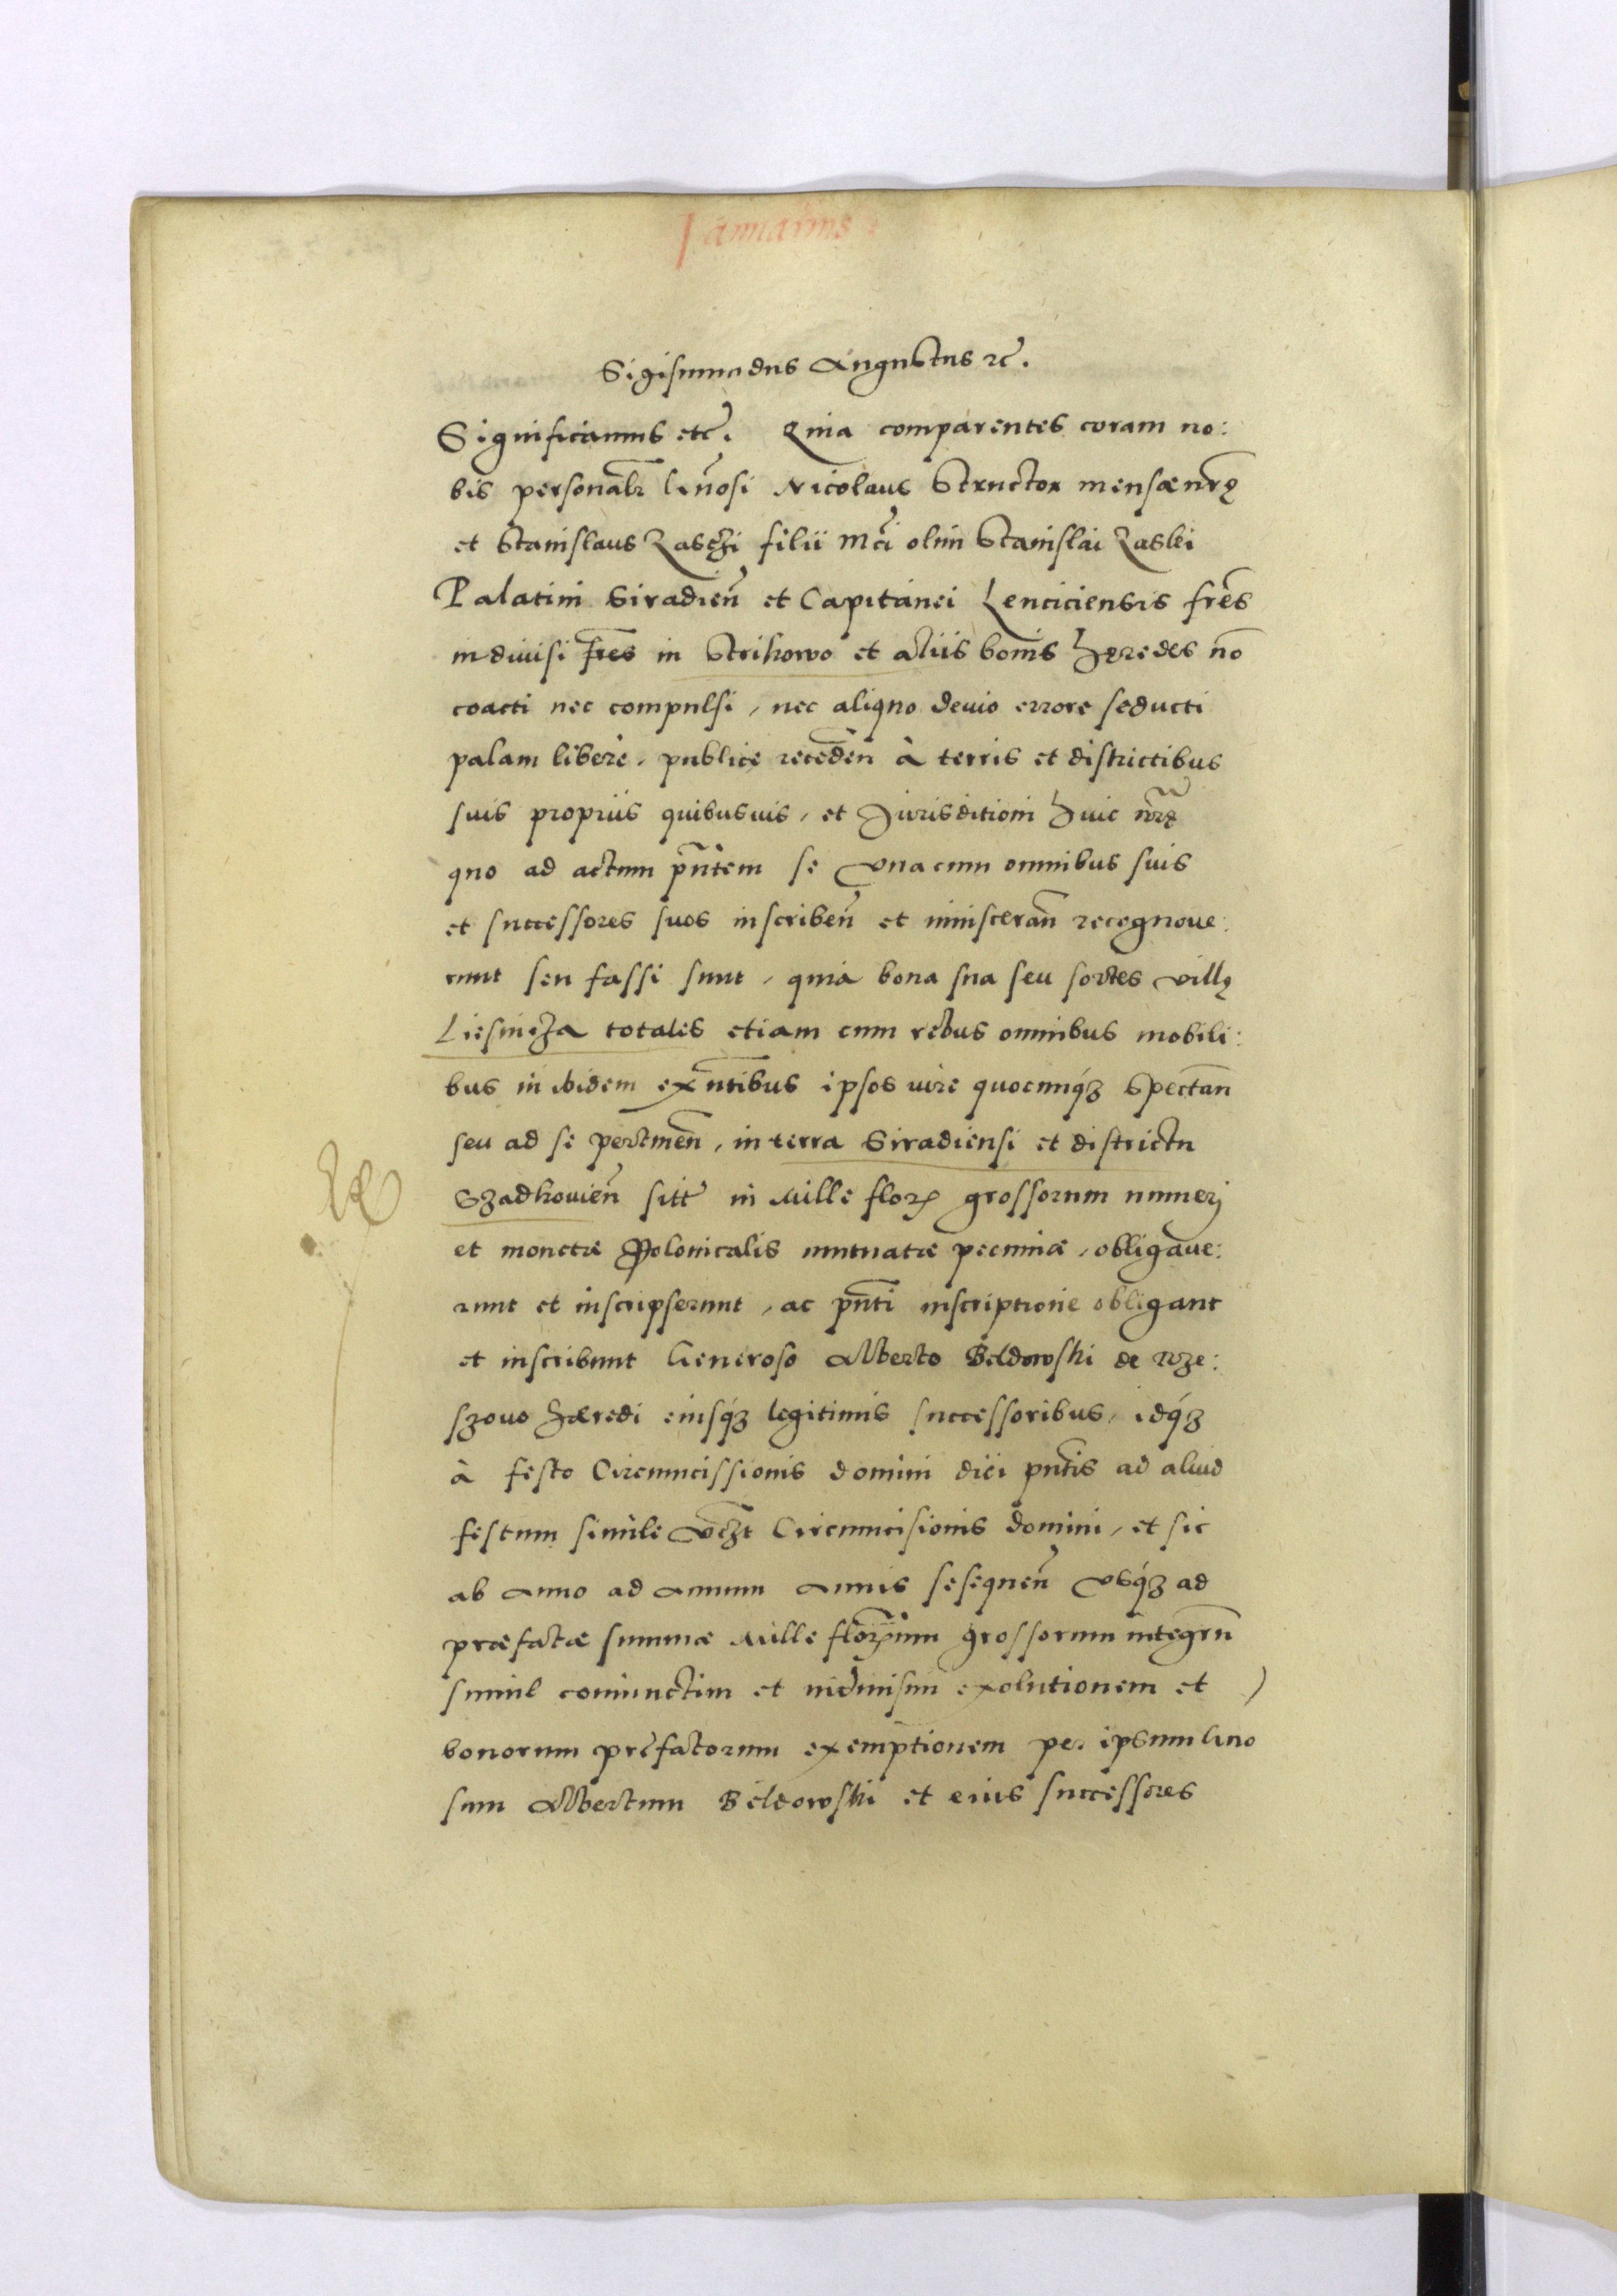 Januarius
Sigismundus Augustus rc̃.
Significamus etc̃. Quia comparentes coram no:
bis personalr̃ Gn̄osi Nicolaus Structor mensæ nr̃ę
et Stanislaus Laschi filii Mcĩ olim Stanislai Laski
Palatini Siradien̄ et Capitanei Lenciciensis frēs
indiuisi frēs in Strikowo et aliis bonis hęredes nō
coacti nec compulsi, nec aliquo deuio errore seducti
palam liberè, publicę receden̄ à terris et districtibus
suis propriis quibusuis, et Jurisditioni huic nr̃ę
quo ad actum pn̄tem se vna cum omnibus suis
et successores suos inscriben̄ et ininsceran̄ recognoue:
runt seu fassi sunt, quia bona sua seu sortes villę
Liesnicza totales etiam cum rebus omnibus mobili:
bus in ibidem exn̄tibus ipsos iure quocunqȝ spectan̄
seu ad se pertinen̄, in terra Siradiensi et districtu
Szadkouien̄ sitt̃ in Mille florꝭ grossorum numeri
et monetæ Polonicalis mutuatæ pecuniæ, obligaue:
runt et inscripserunt, ac pn̄ti inscriptione obligant
et inscribunt Generoso Alberto Beldowski de Rze:
szouo hæredi eiusqȝ legitimis successoribus, idqȝ
à festo Circumcissionis domini diei pn̄tis ad aliud
festum simile vcz̃t Circumcisionis domini, et sic
ab anno ad annum annis sesequen̄ vsqȝ ad
præfatæ summæ Mille florenum grossorum integrū
simul coniunctim et indiuisim exolutionem et
bonorum prefactorum exemptionem per ipsum Gn̄o
sum Albertum Beldowski et eius successores